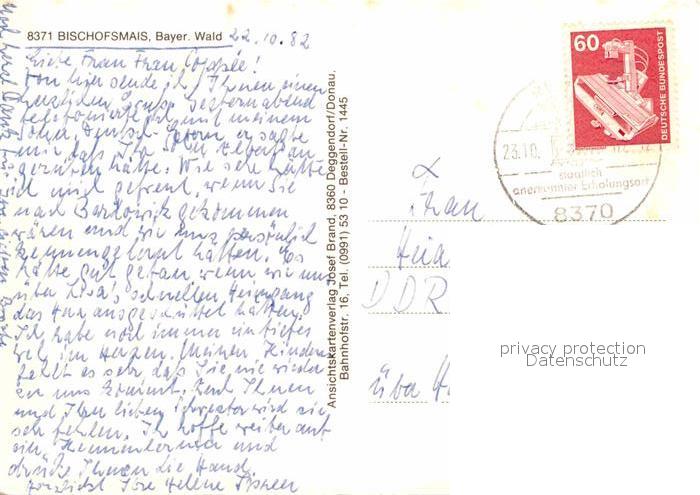 8371 BISCHOFSMAIS, Bayer. Wald 22.10.82
Liebe Frau Frau
Von hier sende ich Ihnen einen
herzlichen Gruß. Gestern abend
telefonierte ich mit meinem
Sohn er sagte
mir daß Ihr Sohn
angerufen hätte. Wie sehr hätte
ich mich gefreut, wenn Sie
nach Bardowick gekommen
wären und wir uns persönlich
kennengelernt hätten. Es
hätte gut getan wenn wir uns
über Lisa's schnellen Heimgang
das Herz ausgeschüttet hätten.
Ich habe noch immer ein tiefes
Weh im Herzen. Meinen Kindern
fehlt es sehr daß Sie nie wieder
zu uns kommt. Auch Ihnen
und Ihrer lieben Schwester wird sie
sehr fehlen. Ich hoffe weiter auf
ein Kennenlernen und
drücke Ihnen die Hand
herzlichst Ihre Helene
Noch herzl. Dank für
Ansichtskartenverlag Josef Brand, 8360 Deggendorf/Donau,
Bahnhofstr. 16, Tel. (0991) 53 10 - Bestell-Nr. 1445
60
DEUTSCHE BUNDESPOST
23.10.
staatlich
anerkannter Erholungsort
8370
Frau
DDR
privacy protection
Datenschutz